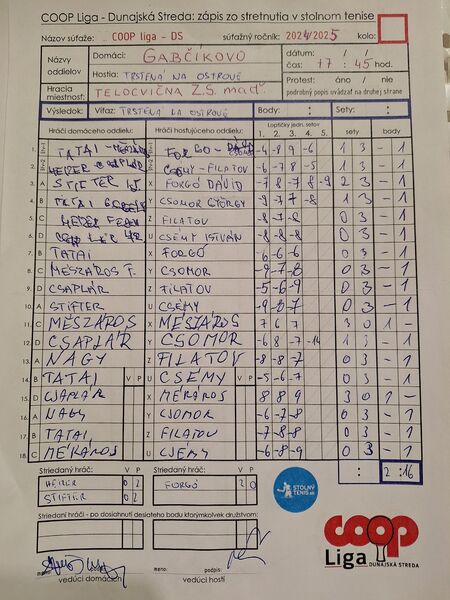 COOP Liga - Dunajská Streda: zápis zo stretnutia v stolnom tenise
Názov súťaže: COOP liga - DS súťažný ročník: 2024/2025 kolo:
Názvy oddielov Domáci: GABČÍKOVO dňa:
Hostia: TRSTENÁ NA OSTROVE čas: 17 : 45 hod.
Hracia miestnosť: TELOCVIČNA Z.Š. maď. Protest: áno / nie
podrobný popis uvádzať na druhej strane
Výsledok: Víťaz: TRSTENÁ NA OSTROVE Body: : Sety: :
Hráči domáceho oddielu: Hráči hosťujúceho oddielu: Loptičky jedn. setov 1. 2. 3. 4. 5. sety body
1. TATAI - FORGO - -4 -8 9 -6 1 3 - 1
2. CSÉMY - FILATOV -6 -7 8 -5 1 3 - 1
3. A STIFTER X FORGÓ DÁVID -7 8 7 8 -9 2 3 - 1
4. B TATAI Y CSOMOR GYÖRGY -9 -7 7 -8 1 3 - 1
5. C Z FILATOV -8 -7 -8 0 3 - 1
6. D U CSÉMY ISTVÁN -8 -8 -8 0 3 - 1
7. B TATAI X FORGÓ -6 -6 -6 0 3 - 1
8. C MÉSZÁROS T. Y CSOMOR -9 -7 -8 0 3 - 1
9. D CSAPLÁR Z FILATOV -5 -6 -9 0 3 - 1
10. A STIFTER U CSÉMY -9 -8 -7 0 3 - 1
11. C MÉSZÁROS X MÉSZÁROS 7 6 7 3 0 1 -
12. D CSAPLÁR Y CSOMOR -6 8 -7 -14 1 3 - 1
13. A NAGY Z FILATOV -8 -8 -7 0 3 - 1
14. B TATAI V P U CSÉMY V P -5 -6 -7 0 3 - 1
15. D CSAPLÁR X MÉSZÁROS 8 8 9 3 0 1 -
16. A NAGY Y CSOMOR -6 -7 -8 0 3 - 1
17. B TATAI Z FILATOV -7 -8 -8 0 3 - 1
18. C MÉSZÁROS U CSÉMY -6 -8 -9 0 3 - 1
Striedaný hráč: V P Striedaný hráč: V P : 2 :16
0 2 FORGÓ 2 0
STIFTER 0 2
STOLNÝ TENIS.sk
Striedaní hráči - po dosiahnutí desiateho bodu ktorýmkoľvek družstvom:
V P V P
coop
Liga DUNAJSKÁ STREDA
meno: podpis meno: podpis
vedúci domácich vedúci hostí